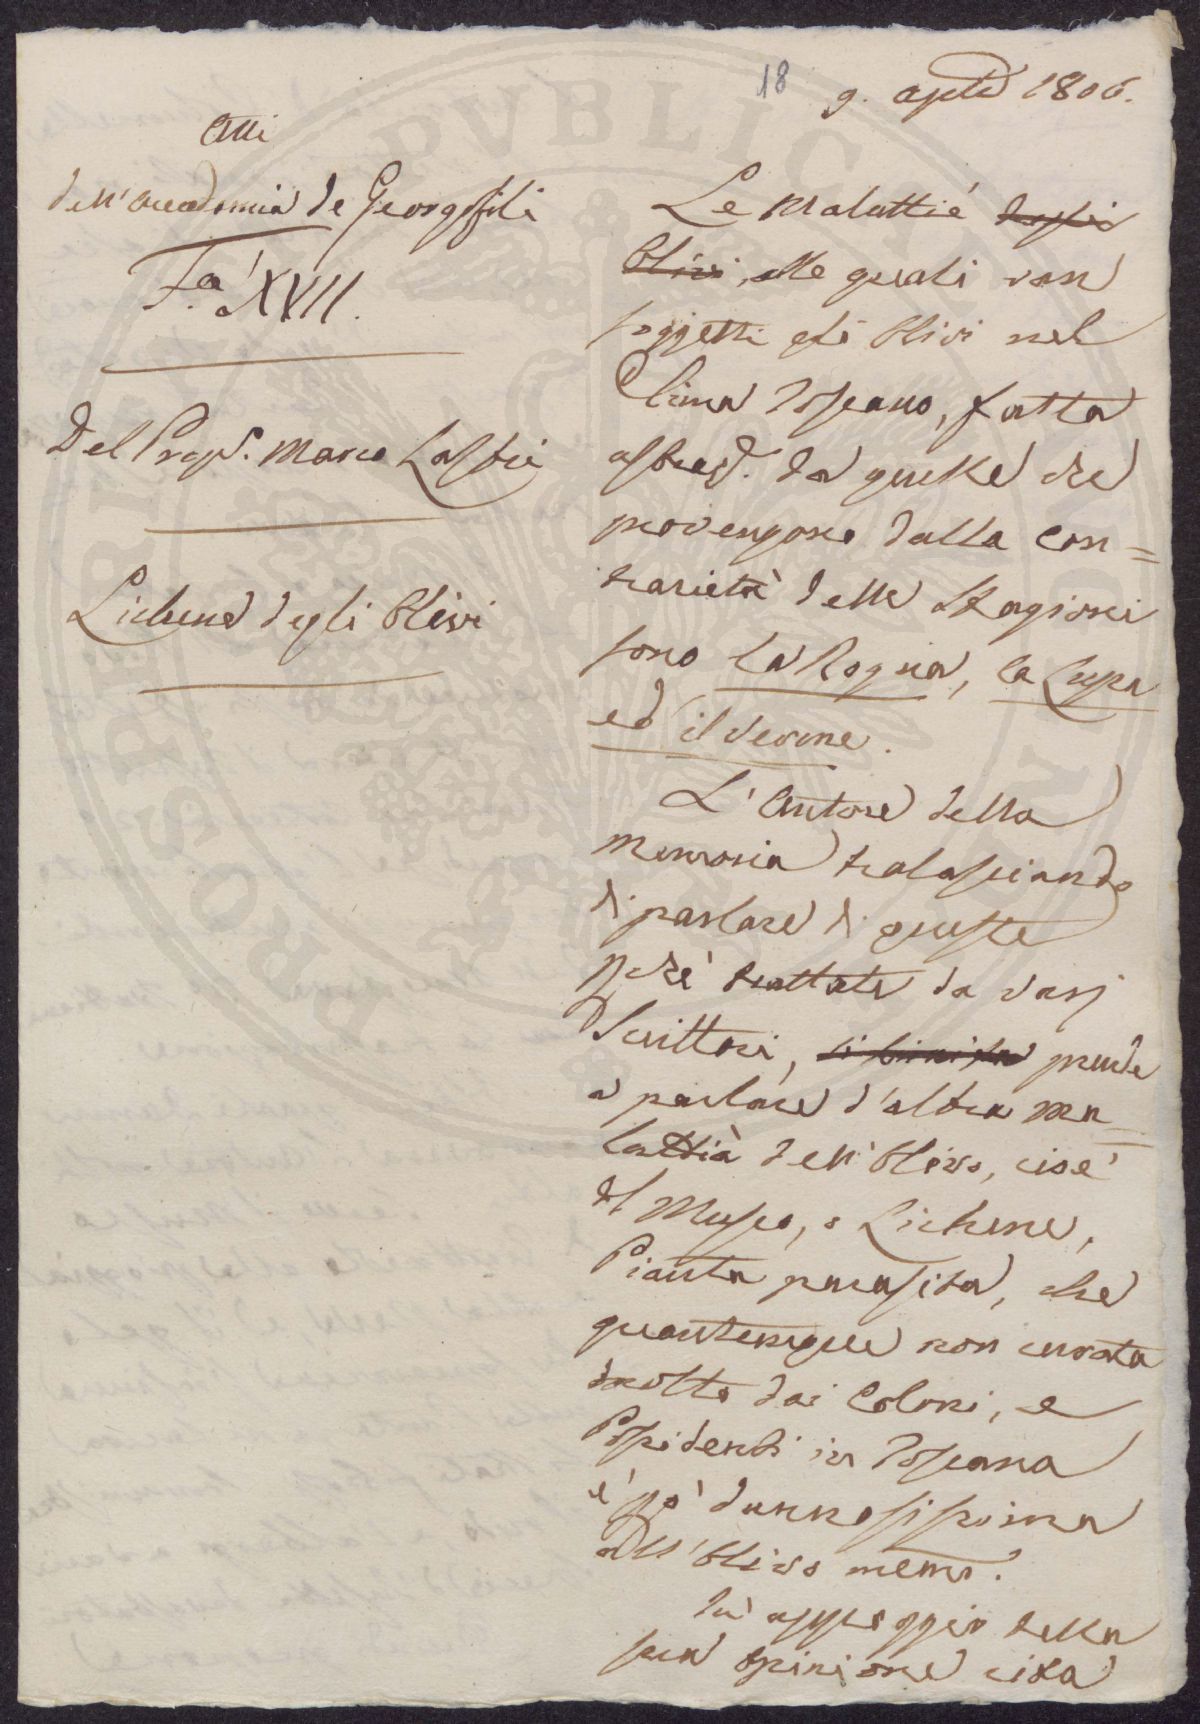 18
9. Agosto 1806.
Atti
dell'Accademia de Georgofili
T.a XVII.
Del Prop. Marco Lastri
Lichene degli Olivi
Le Malattie degli
Olivi, alle quali van
soggetti gli Olivi nel
Clima Toscano, fatta
astraz. da quelle che
provengono dalla con=
trarietà delle Stagioni
sono la Rogna, la Lupa
ed il Verme.
L'Autore della
memoria tralasciando
di parlare di queste
pchè trattate da varj
Scrittori, prende
a parlare d'altra ma=
lattia dell'Olivo, cioè
del Musco, o Lichene,
Pianta parasita, che
quantunque non curata
molto dai Coloni, e
Possidenti in Toscana
è pò dannosissima
all'Olivo meno.
In appoggio della
sua opinione cita
PVBLICAE
PROSPERITATI